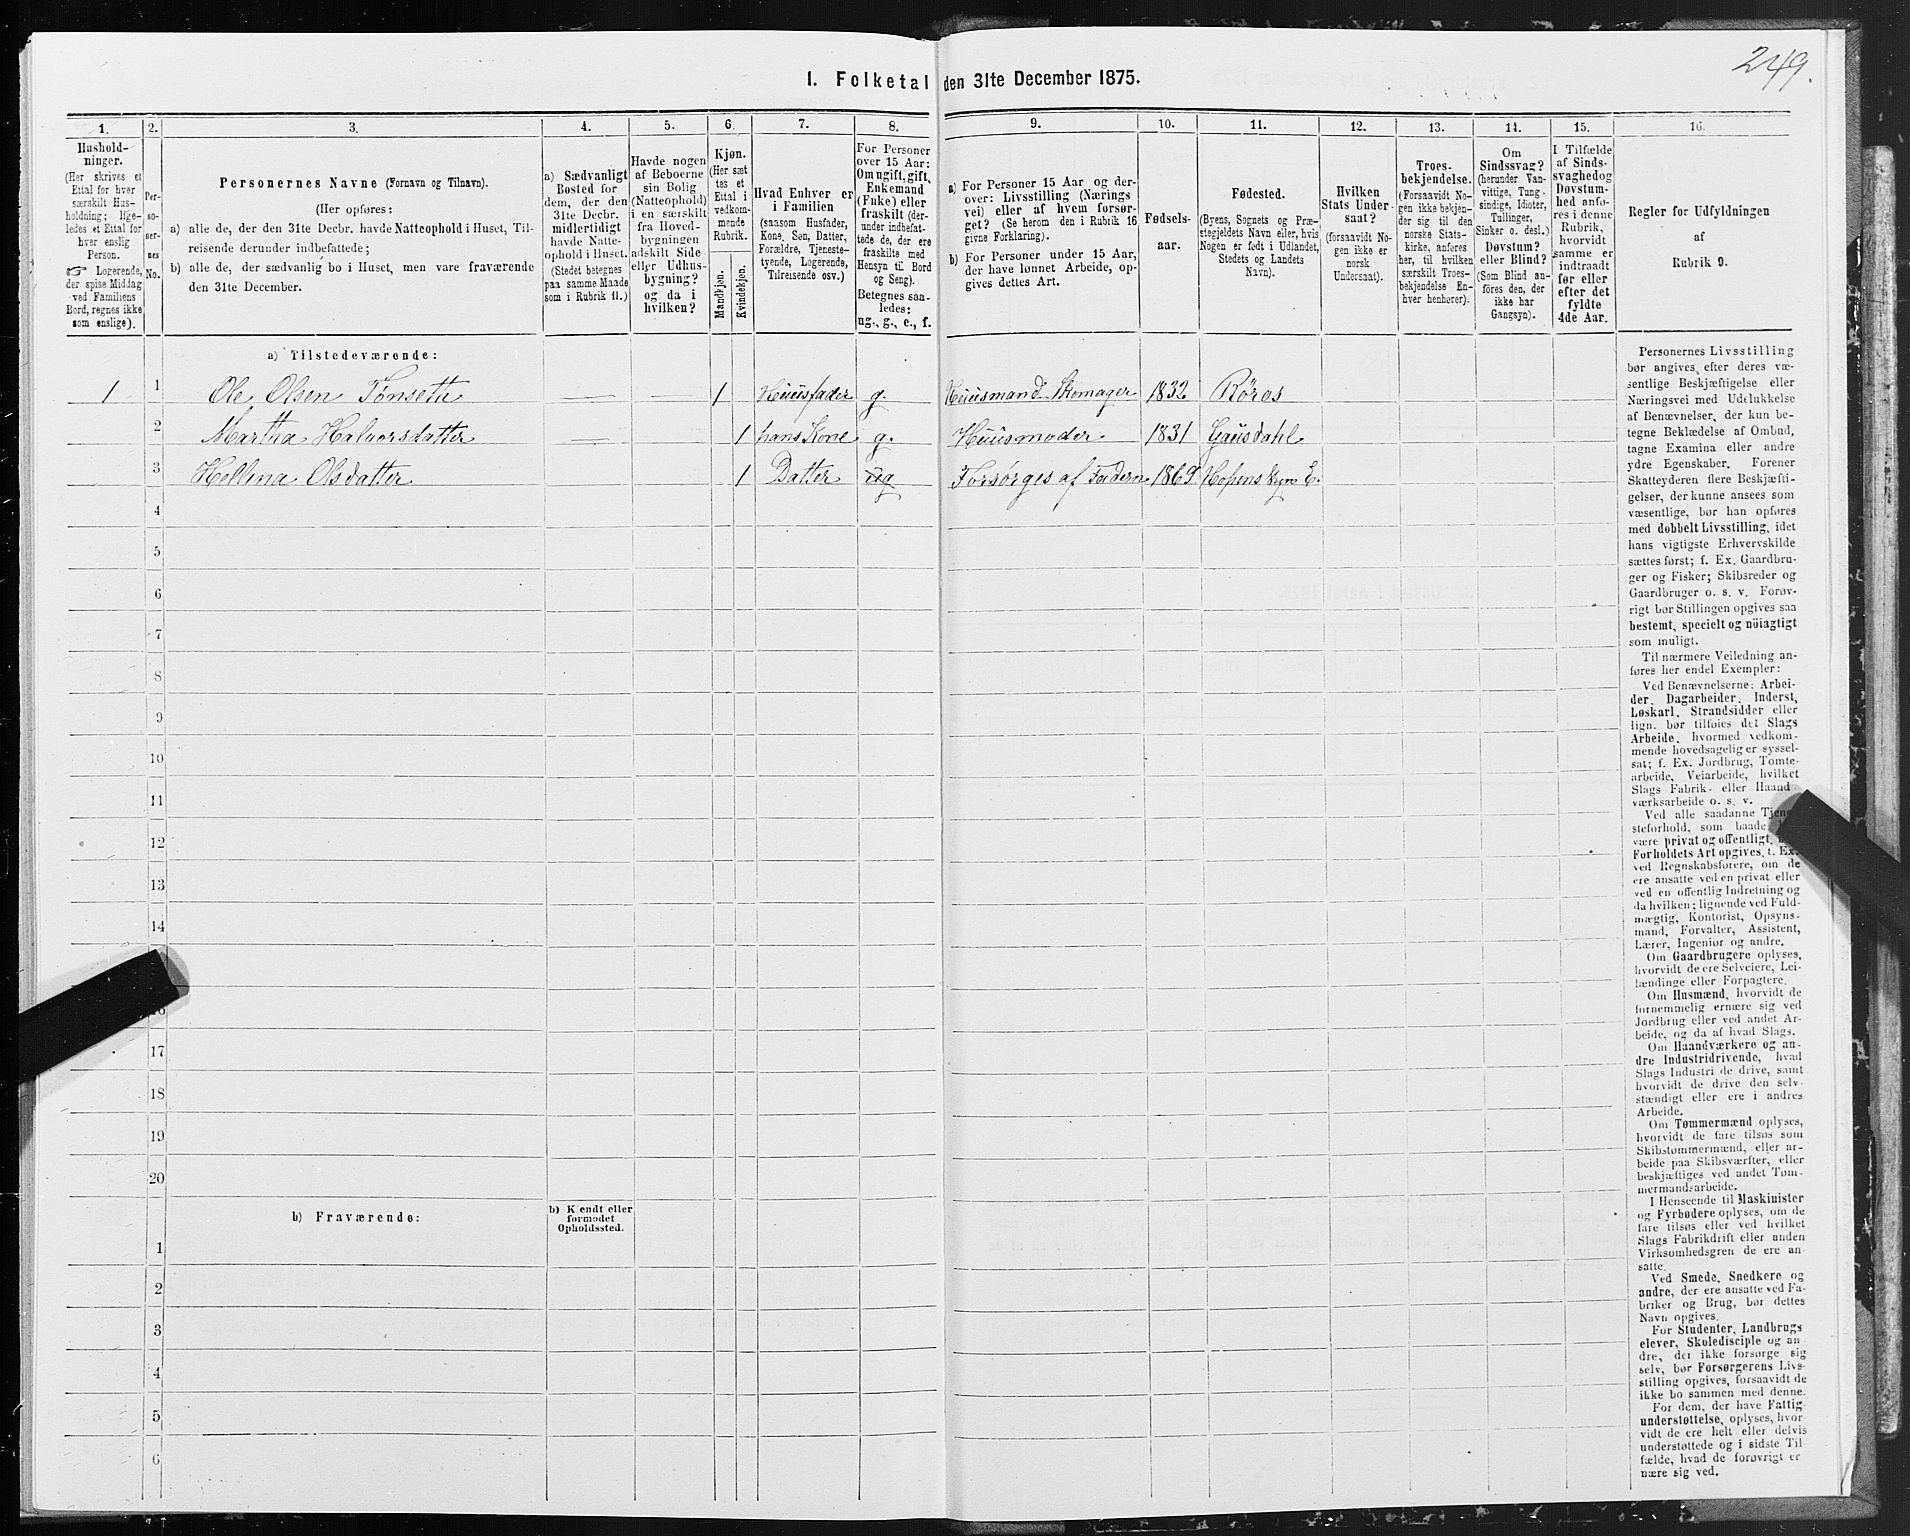 249.
1. Folketal den 31te December 1875.
1. 2. 3. 4. 5. 6. 7. 8. 9. 10. 11. 12. 13. 14. 15. 16.
Hushold-
ninger.
(Her skrives et
Ettal for hver
særskilt Hus-
holdning; lige-
ledes et Ettal for
hver enslig
Person.
☞ Logerende,
der spise Middag
ved Familiens
Bord, regnes ikke
som enslige).
Per-
so-
ner-
nes
No.
Personernes Navne (Fornavn og Tilnavn).
(Her opføres:
a) alle de, der den 31te Decbr. havde Natteophold i Huset, Til-
reisende derunder indbefattede;
b) alle de, der sædvanlig bo i Huset, men vare fraværende
den 31te December.
a) Sædvanligt
Bosted for
dem, der den
31te Decbr.
midlertidigt
havde Natte-
ophold i Huset.
(Stedet betegnes
paa samme Maade
som i Rubrik 11.)
Havde nogen
af Beboerne
sin Bolig
(Natteophold)
i en særskilt
fra Hoved-
bygningen
adskilt Side
eller Udhus-
bygning?
og da i
hvilken?
Kjøn.
(Her sæt
tes et
Ettal i
vedkom-
mende
Rubrik.
Mandkjøn.
Kvindekjøn.
Hvad Enhver er
i Familien
(saasom Husfader,
Kone, Søn, Datter,
Forældre, Tjeneste-
tyende, Logerende,
Tilreisende osv.)
For Personer
over 15 Aar:
Om ugift, gift,
Enkemand
(Enke) eller
fraskilt (der-
under indbefat-
tede de, der ere
fraskilte med
Hensyn til Bord
og Seng).
Betegnes saa-
ledes:
ug., g., e., f.
a) For Personer 15 Aar og der-
over: Livsstilling (Nærings
vei) eller af hvem forsør-
get? (Se herom den i Rubrik 16
givne Forklaring).
b) For Personer under 15 Aar,
der have lønnet Arbeide, op-
gives dettes Art.
Fødsels-
aar.
Fødested.
(Byens, Sognets og Præ-
stegjeldets Navn eller, hvis
Nogen er født i Udlandet,
Stedets og Landets
Navn).
Hvilken
Stats Under-
saat?
(forsaavidt No-
gen ikke er
norsk
Undersaat).
Troes-
bekjendelse.
(Forsaavidt No-
gen ikke bekjen-
der sig til den
norske Stats-
kirke, anføres
her, til hvilken
særskilt Troes-
bekjendelse En-
hver henhører).
Om
Sindssvag?
(herunder Van-
vittige, Tung-
sindige, Idioter,
Tullinger,
Sinker o. desl.)
Døvstum?
eller Blind?
(Som Blind an-
føres den, der
ikke har
Gangsyn).
I Tilfælde
af Sinds-
svaghed og
Døvstum-
hed anfø-
res i denne
Rubrik,
hvorvidt
samme er
indtraadt
før eller
efter det
fyldte
4de Aar.
Regler for Udfyldningen
af
Rubrik 9.
a) Tilstedeværende:
1 1 Ole Olsen Tønseth — — 1 Huusfader g. Huusmand Skomager 1832 Røros
2 Martha Halvorsdatter — 1 hans Kone g. Huusmoder 1831 Gausdahl
3 Hellena Olsdatter 1 Datter ug Forsørges af Faderen 1869
4
5
6
7
8
9
10
11
12
13
14
16
17
18
19
20
b) Fraværende:
b) Kjendt eller
formodet
Opholdssted.
1
2
3
4
5
6
Personernes Livsstilling
bør angives efter deres væ-
sentlige Beskjæftigelse eller
Næringsvei med Udelukkelse
af Benævnelser, der kun be-
tegne Beklædelse af Ombud,
tagne Examina eller andre
ydre Egenskaber. Forener
Skatteyderen flere Beskjæfti-
gelser, der kunne ansees som
væsentlige, bør han opføres
med dobbelt Livsstilling, idet
hans vigtigste Erhvervskilde
sættes først; f. Ex. Gaardbru-
ger og Fisker; Skibsreder og
Gaardbruger o. s. v. Forøv-
rigt bør Stillingen opgives saa
bestemt, specielt og nøiagtigt
som muligt.
Til nærmere Veiledning an-
føres her endel Exempler:
Ved Benævnelserne: Arbei-
der, Dagarbeider, Inderst,
Løskarl, Strandsidder eller
lign. bør tilføies det Slags
Arbeide, hvormed vedkom-
mende hovedsagelig er syssel-
sat; f. Ex. Jordbrug, Tomte-
arbeide, Veiarbeide, hvilket
Slags Fabrik- eller Haand-
værksarbeide o. s. v.
Ved alle saadanne Tjene-
steforhold, som baade
være privat og offentligt,
Forholdets Art opgives, f. Ex.
ved Regnskabsførere, om de
ere ansatte ved en privat eller
ved en offentlig Indretning og
da hvilken; lignende ved Fuld-
mægtig, Kontorist, Opsyns-
mand, Forvalter, Assistent,
Lærer, Ingeniør og andre.
Om Gaardbrugere oplyses,
hvorvidt de ere Selveiere, Lei-
lændinge eller Forpagtere.
Om Husmænd, hvorvidt de
fornemmelig ernære sig ved
Jordbrug eller ved andet Ar-
beide, og da af hvad Slags.
Om Haandværkere og an-
dre Industridrivende, hvad
Slags Industri de drive, samt
hvorvidt de drive den selv-
stændigt eller ere i andres
Arbeide.
Om Tømmermænd oplyses,
hvorvidt de fare tilsøs som
Skibstømmermænd, eller ar-
beide paa Skibsværfter, eller
beskjæftiges ved andet Tøm-
mermandsarbeide.
I Henseende til Maskinister
og Fyrbødere oplyses, om de
fare tilsøs eller ved hvilket
Slags Fabrikdrift eller anden
Virksomhedsgren de ere an-
satte.
Ved Smede, Snedkere og
andre, der ere ansatte ved Fa-
briker og Brug, bør dettes
Navn opgives.
For Studenter, Landbrugs
elever, Skoledisciple og an-
dre, der ikke forsørge sig
selv, bør Forsørgerens Livs-
stilling opgives, forsaavidt de
ikke bo sammen med denne.
For dem, der have Fattig-
understøttelse, oplyses, hvor-
vidt de ere helt eller delvis
understøttede og i sidste Til-
fælde, hvad de forøvrigt er
nære sig ved.